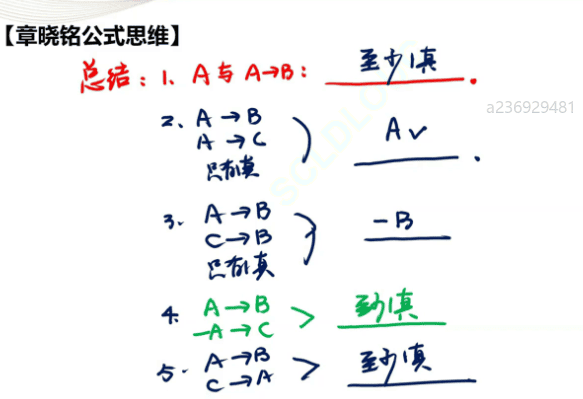 【章晓铭公式思维】
总结：1、A与A→B： 至少1真．
a236929481
2、A→B
A→C
只有1真
A✓．
3、A→B
C→B
只有1真
-B
4、A→B
-A→C
> 至少1真
5、A→B
C→A
> 至少1真